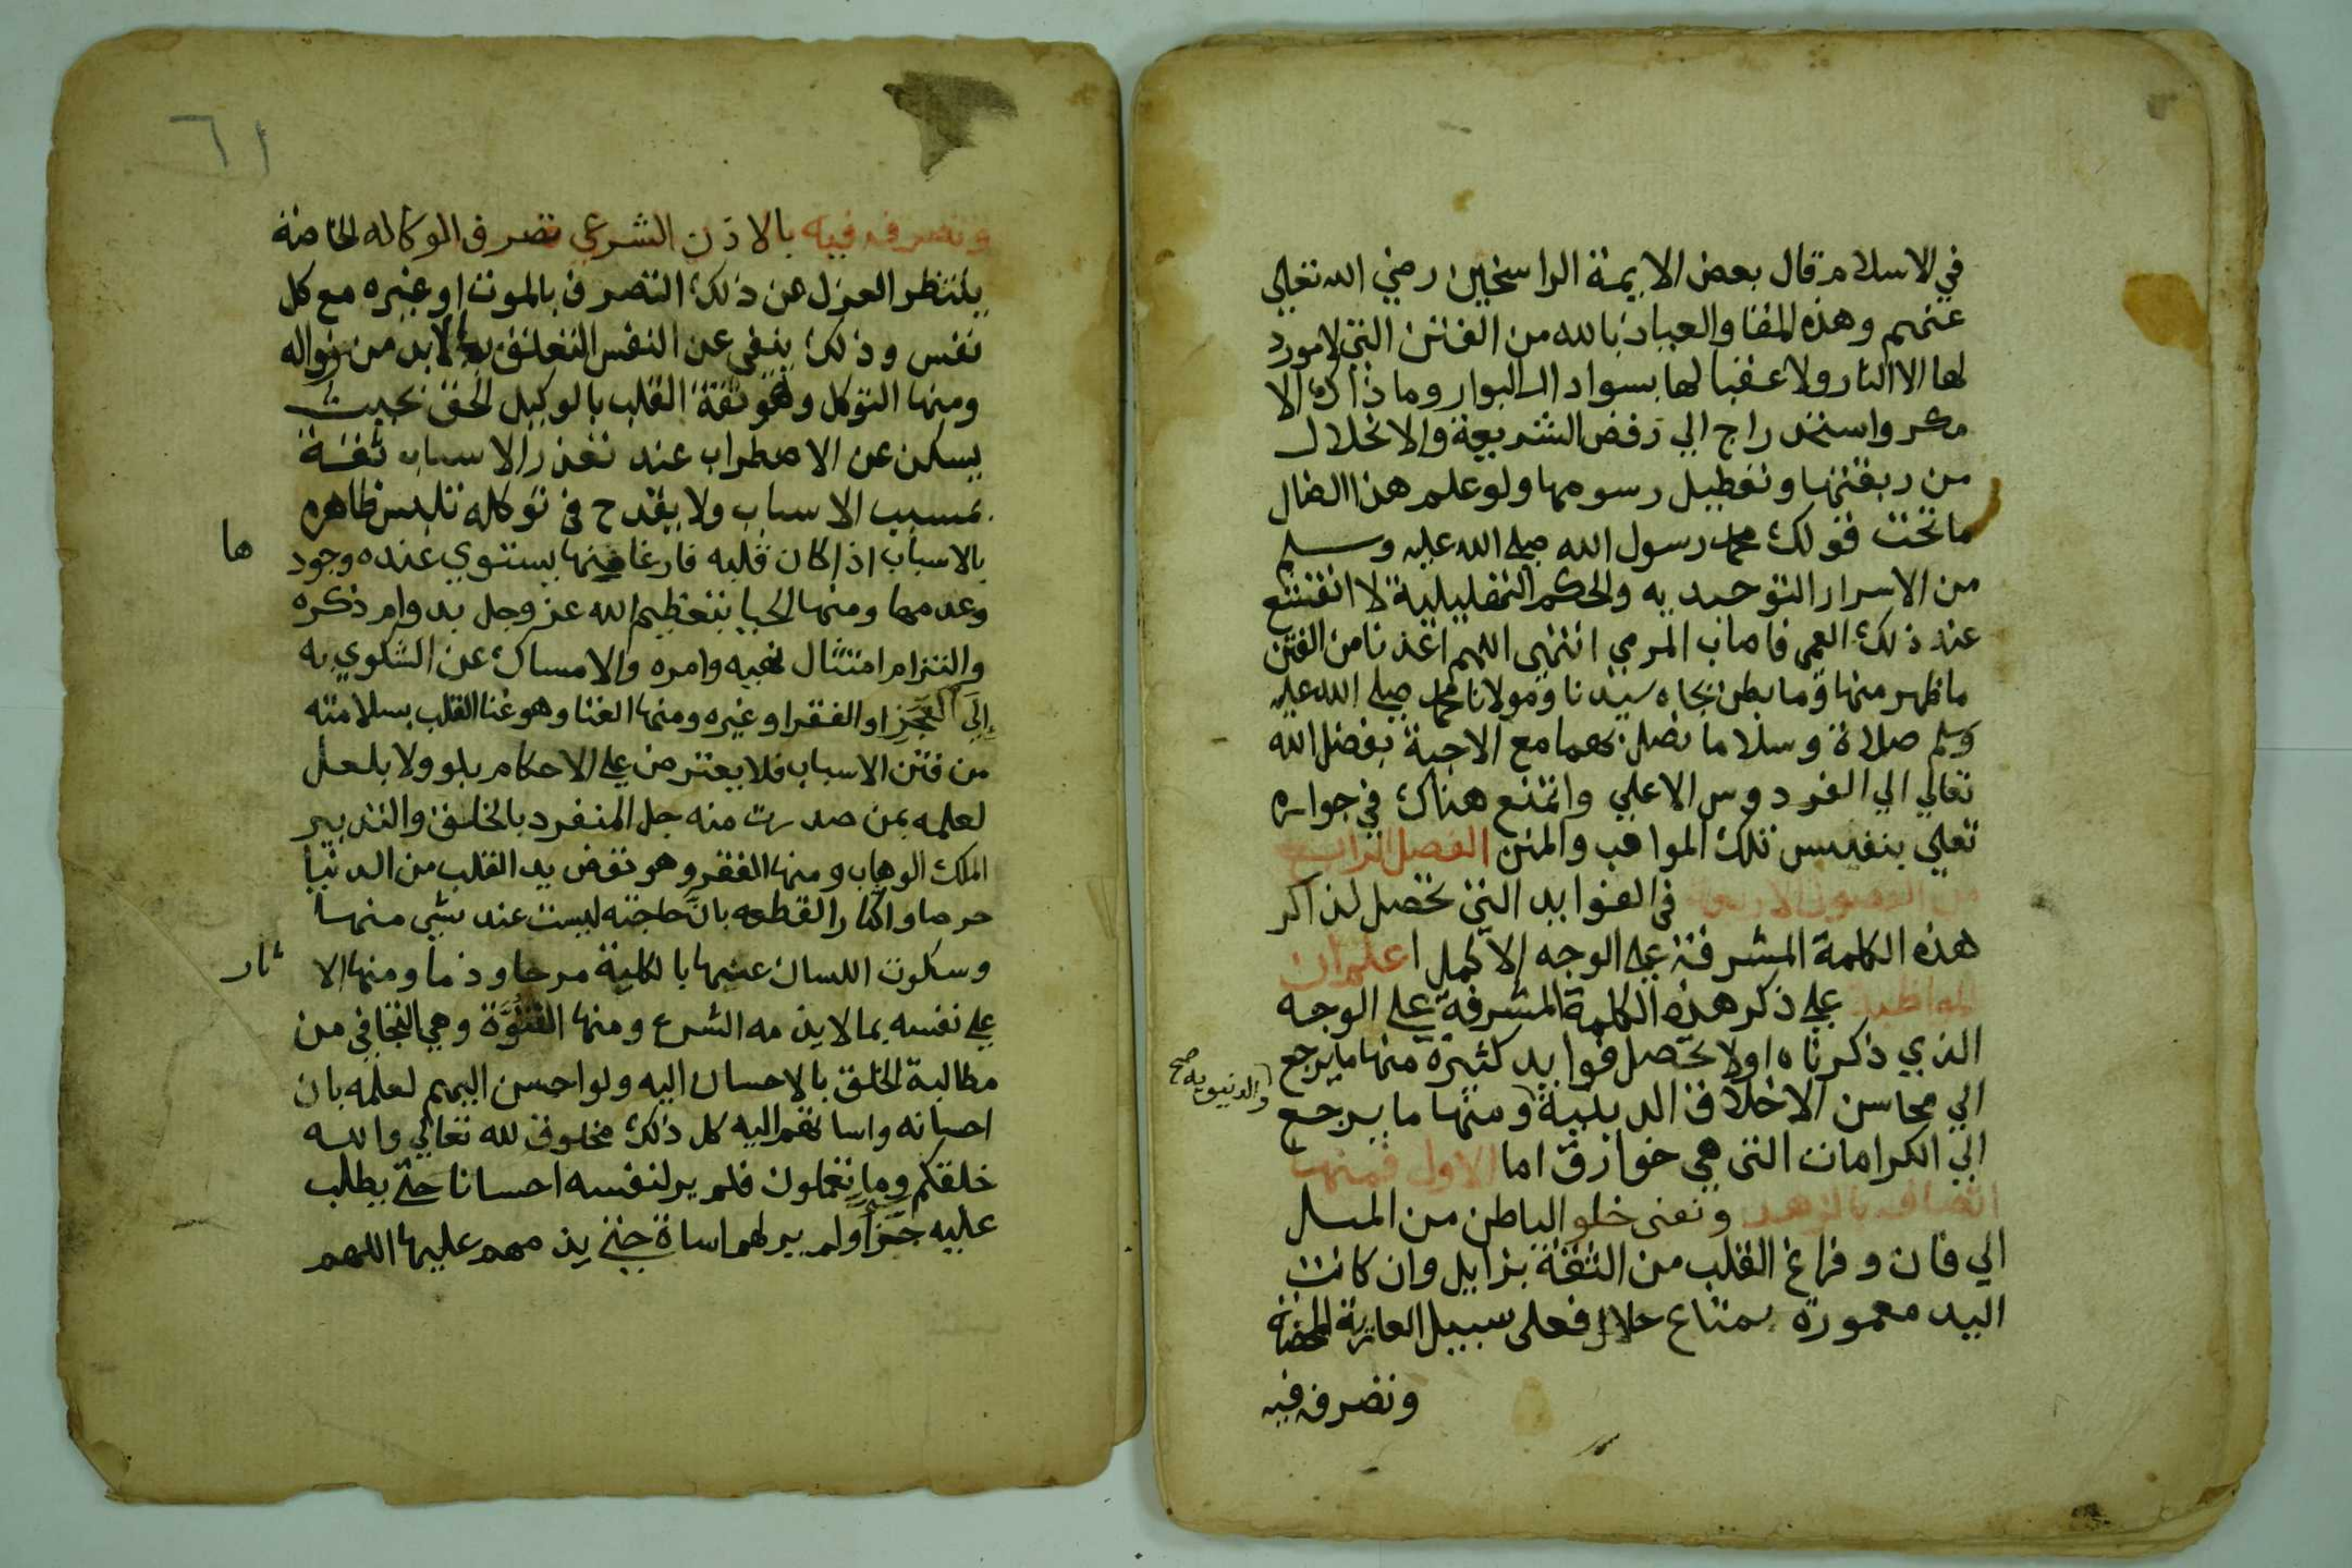 في الاسلام قال بعض الايمة الراسخين رضي الله تعلي
عنهم وهذه المقا والعياذ بالله من الفتن التي لامورد
لها الا النار ولا عقبا لها بسواد الـ البوار وما ذاك الا
مكر واستدراج الي رفض الشريعة والانحلال
من ربقتها وتعطيل رسومها ولو علم هذا الضال
ماتحت قولك محمد رسول الله صلي الله عليه وسلم
من الاسرار التوحيديه والحكم التهليلية لا انقشع
عند ذلك العمي فاصاب المرمي انتهى اللهم اعذنا من الفتن
ماظهر منها وما بطن بجاه سيدنا ومولانا محمد صلي الله عليه
وسلم صلاة وسلاما نصل بهما مع الاحبة بفضل الله
تعالي الي الفردوس الاعلي وانتمتع هناك في جواره
تعلي بنفيس تلك المواهب والمنن الفصل الرابع
من الفصول الاربعة في الفوايد التي تحصل لذاكر
هذه الكلمة المشرفة علي الوجه الاكمل اعلم ان
المواظبة علي ذكر هذه الكلمة المشرفة علي الوجه
الذي ذكرناه اولا تحصل فوايد كثيرة منها مايرجع
الي محاسن الاخلاق الدينية ومنها ما يرجع
والدنيويه صح
الي الكرامات التي هي خوارق اما الاول فمنها
اتصافه بالزهد ونعني خلو الباطن من الميل
الي فان وفراغ القلب من الثقة بزايل وان كانت
اليد معمورة بمتاع حلال فعلى سبيل العارية المحضة
وتصرفه فيه
٦١
وتصرفه فيه بالاذن الشرعي تصرف الوكاله الخاصة
ينتظر العزل عن ذلك التصرف بالموت او غيره مع كل
نفس وذلك ينفي عن النفس التعلق بما لابد من زواله
ومنها التوكل وهو ثقة القلب بالوكيل الحق بحيث
يسكن عن الاضطراب عند تعذر الاسباب ثقة
بمسبب الاسباب ولا يقدح في توكله تلبس ظاهره
بالاسباب اذا كان قلبه فارغا منها يستوي عنده وجود
ها
وعدمها ومنها الحيا بتعظيم الله عز وجل بدوام ذكره
والتزام امتثال نهيه وامره والامساك عن الشكوي به
إلَي العَجَزِ او الفقرا وغيره ومنها الغنا وهو غنا القلب بسلامته
من فتن الاسباب فلا يعترض علي الاحكام بلو ولا بلعل
لعلمه بمن صدرت منه جل المنفرد بالخلق والتدبير
الملك الوهاب ومنها الفقر وهو نفض يد القلب من الدنيا
حرصا واكثارا لقطعه بان حاجته ليست عند شي منها
وسكوت اللسان عنها بالكلية مرحا وذما ومنها الا
ثار
علي نفسه بما لا يذمه الشرع ومنها الفتُوَّة وهي التجافي من
مطالبة الخلق بالاحسان اليه ولو احسن اليهم لعلمه بان
احسانه واساتهم اليه كل ذلك مخلوق لله تعالي والله
خلقكم وما تعملون فلم ير لنفسه احسانا حتي يطلب
عليه جزاً ولم ير لهم اساة حتي يذمهم عليها اللهم